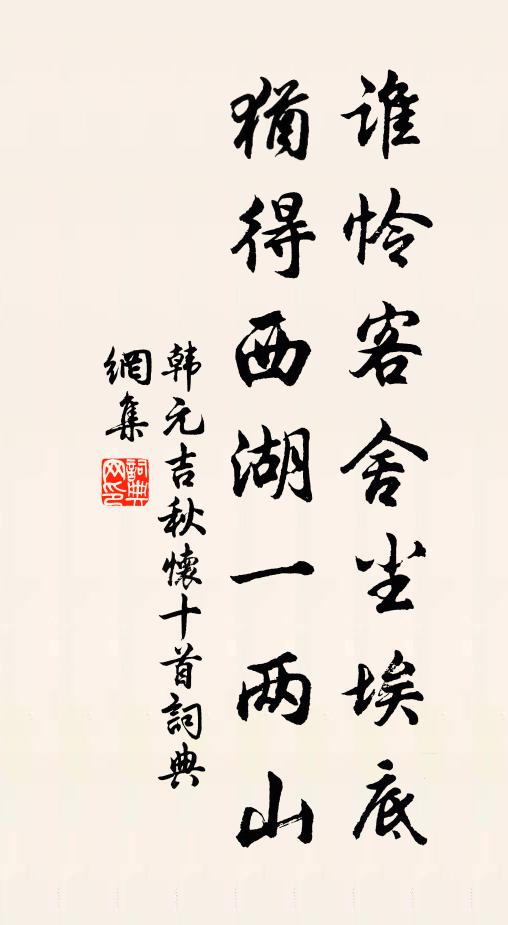 谁怜客舍尘埃底
犹得西湖一两山
韩元吉秋懷十首詞典
網集
詞典
网印